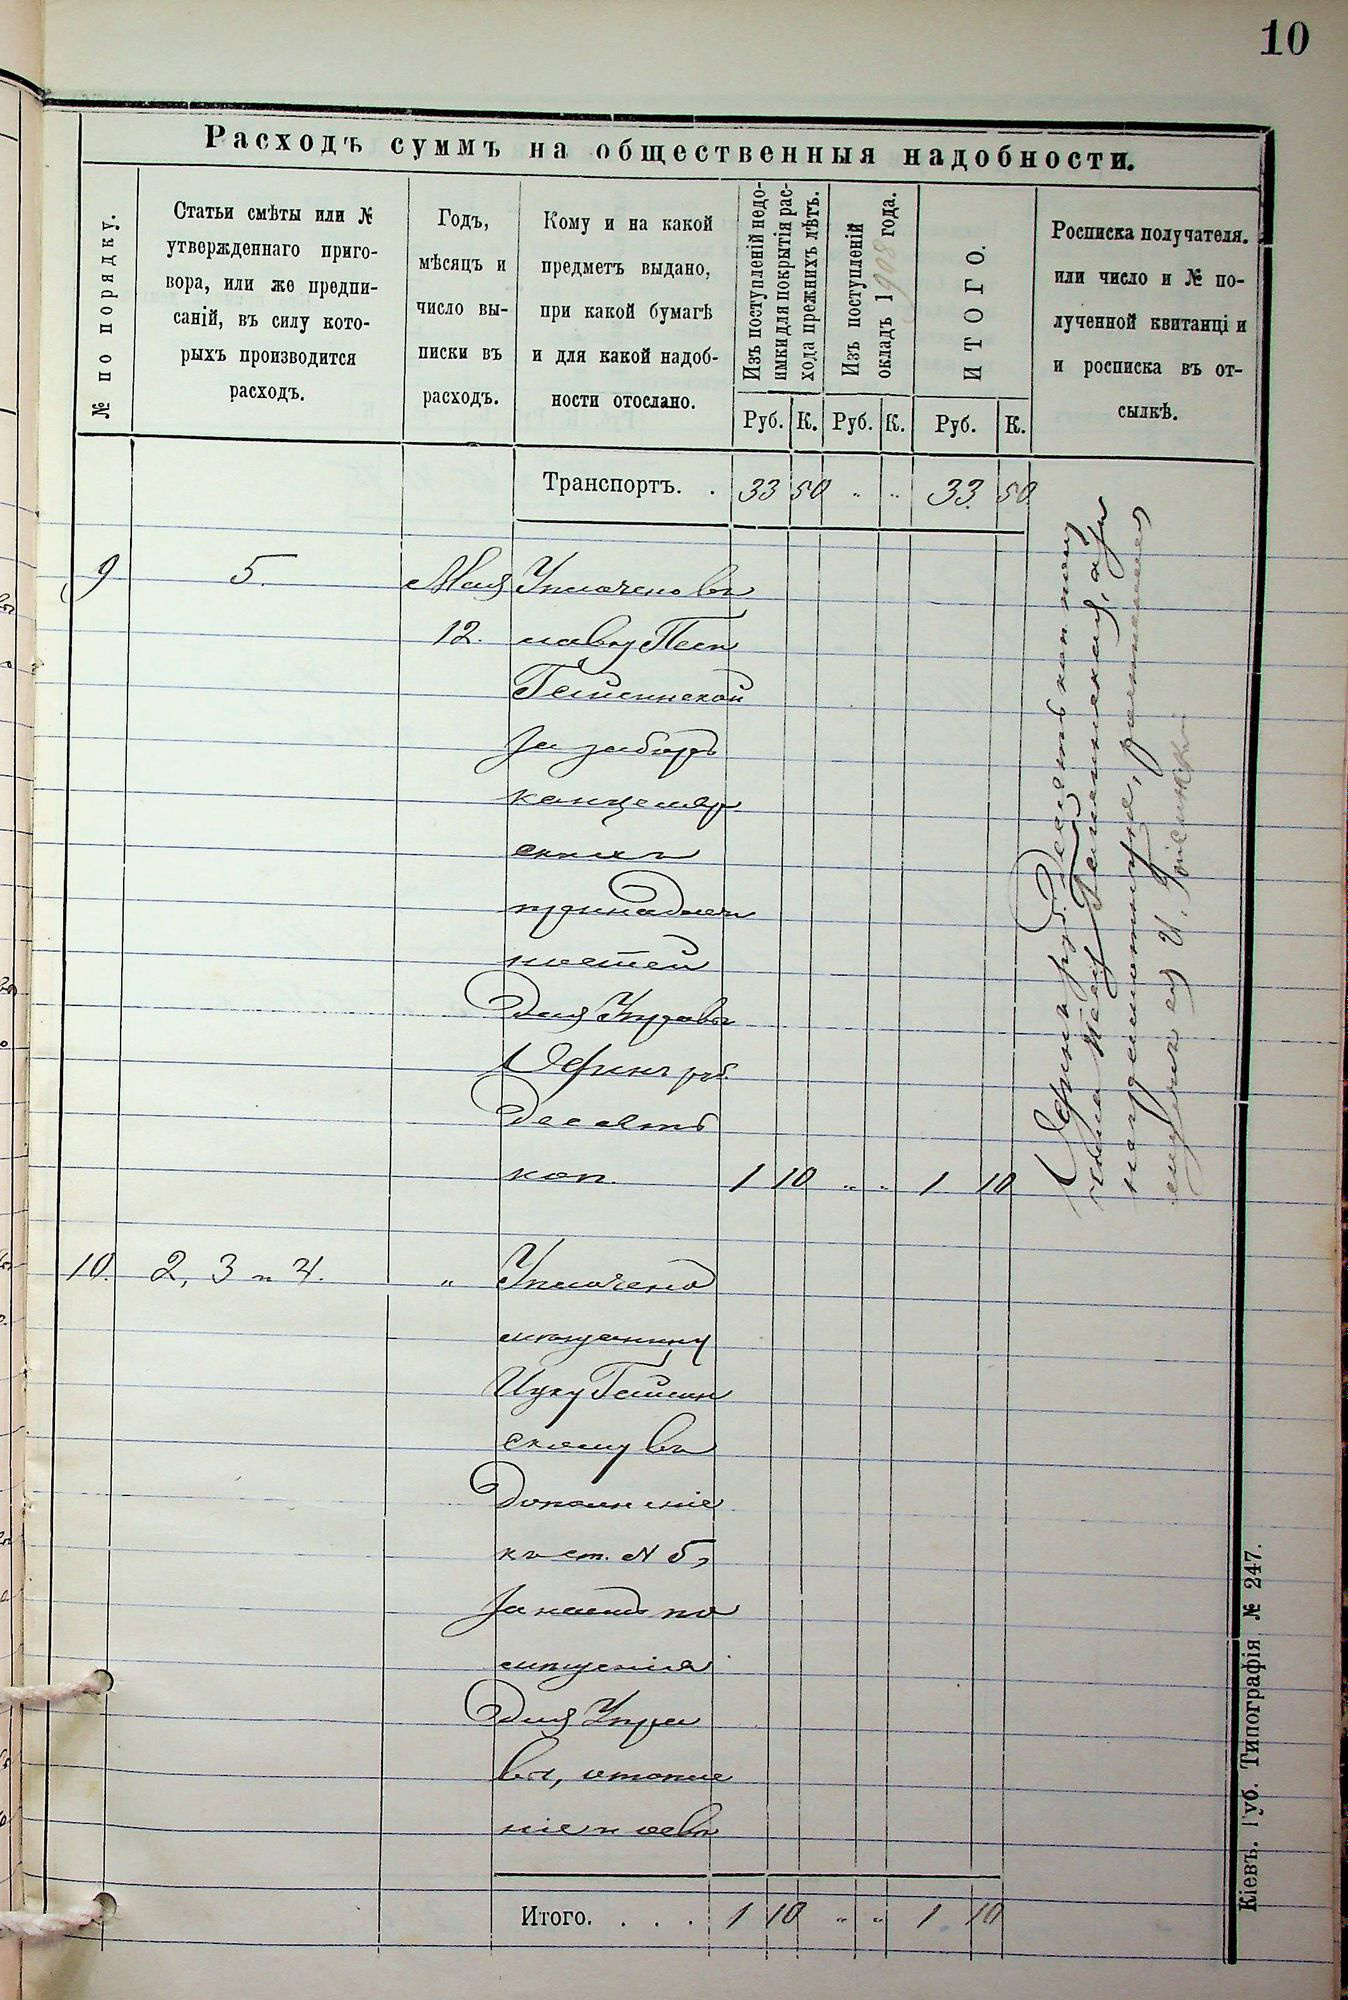 10
Расходъ суммъ на общественныя надобности.
№ по порядку.
Статьи смѣты или №
утвержденнаго приго-
вора, или же предпи-
саній, въ силу кото-
рыхъ производится
расходъ.
Годъ,
мѣсяцъ и
число вы-
писки въ
расходъ.
Кому и на какой
предметъ выдано,
при какой бумагѣ
и для какой надоб-
ности отослано.
Изъ поступленій недо-
имки для покрытія рас-
хода прежнихъ лѣтъ.
Изъ поступленій
окладъ 1908 года.
ИТОГО.
Росписка получателя.
или число и № по-
лученной квитанці и
и росписка въ от-
сылкѣ.
Руб. К. Руб. К. Руб. К.
Транспортъ. . 33 50 „ „ 33 50
9 5. Мая Уплачено въ
12. лавку Песи
Гейсинской
за заборъ
канцеляр
скихъ
принадлеж
ностей
для Управы
Одинъ руб.
десять
коп. 1 10 „ „ 1 10
Одинъ руб. десять коп. полу
чила Песя Гейсинская, а за
неграмотную, росписался
И. Гейсинскій
10. 2, 3 и 4. „ Уплачено
мѣщанину
Ицку Гейсин
скому въ
дополненіе
къ ст. № 5,
за наемъ по
мѣщенія
для Упра
вы, отопле
ніе и осв
Итого. . . . 1 10 „ „ 1 10
Кіевъ. Губ. Типографія № 247.